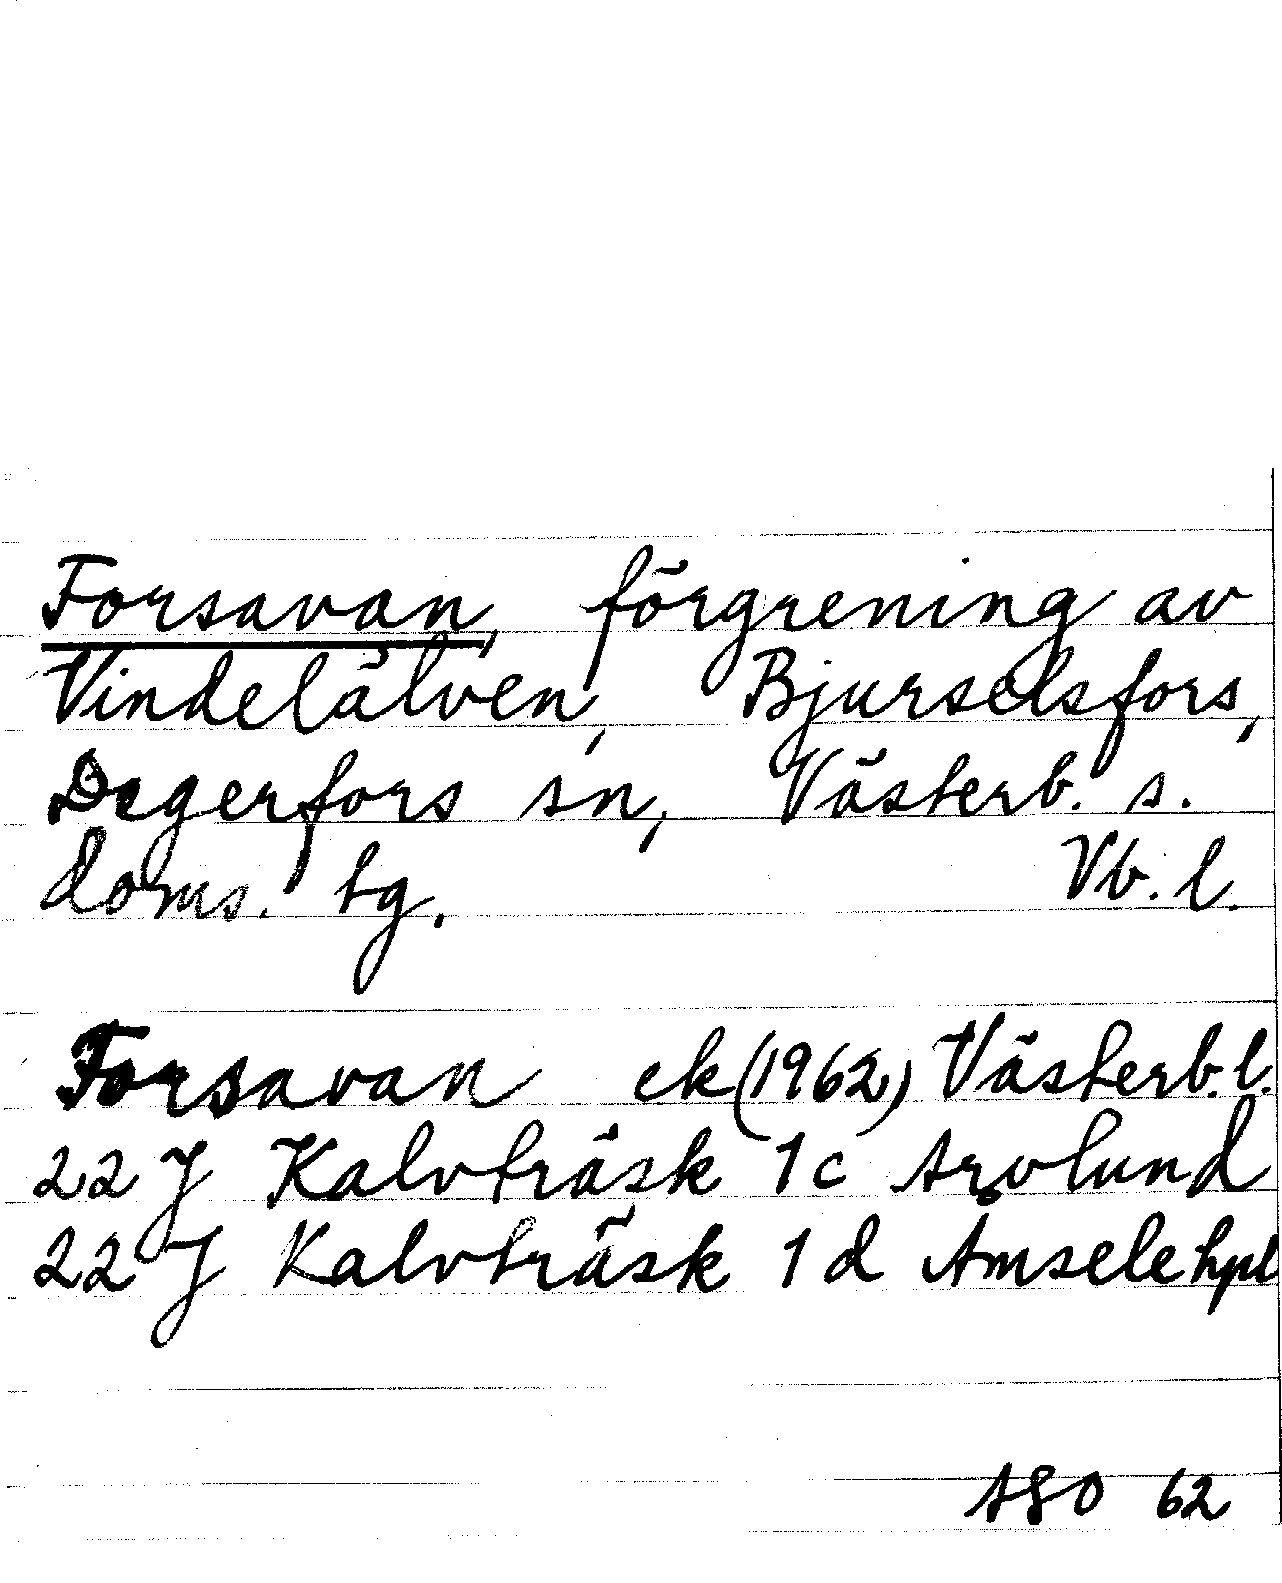 Forsavan, förgrening av
Vindelälven, Bjurselsfors,
Degerfors sn, Västerb. s.
doms. tg. Vb. l.
Forsavan ek (1962) Västerb. l.
22 J Kalvträsk 1 c Arvlund
22 J Kalvträsk 1 d Åmsele hpl
62